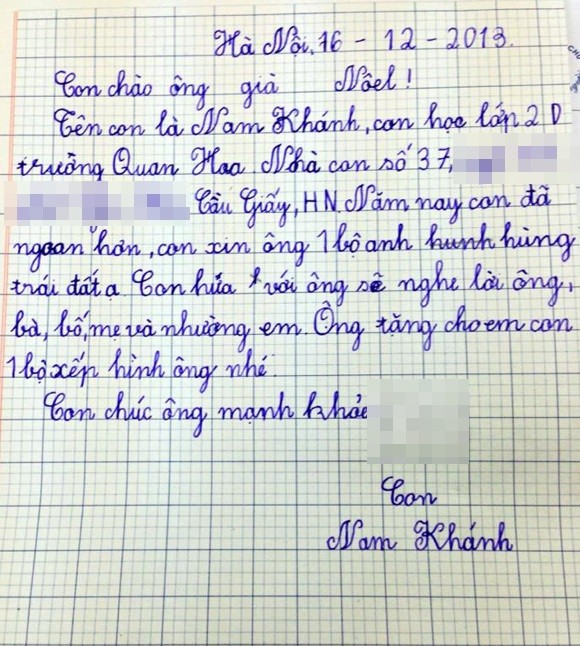 Hà Nội, 16 - 12 - 2013.
Con chào ông già Nôel!
Tên con là Nam Khánh, con học lớp 2D
trường Quan Hoa Nhà con số 37,
Cầu Giấy, HN. Năm nay con đã
ngoan hơn, con xin ông 1 bộ anh hunh hùng
trái đất ạ Con hứa với ông sẽ nghe lời ông,
bà, bố, mẹ và nhường em. Ông tặng cho em con
1 bộ xếp hình ông nhé.
Con chúc ông mạnh khỏe
Con
Nam Khánh